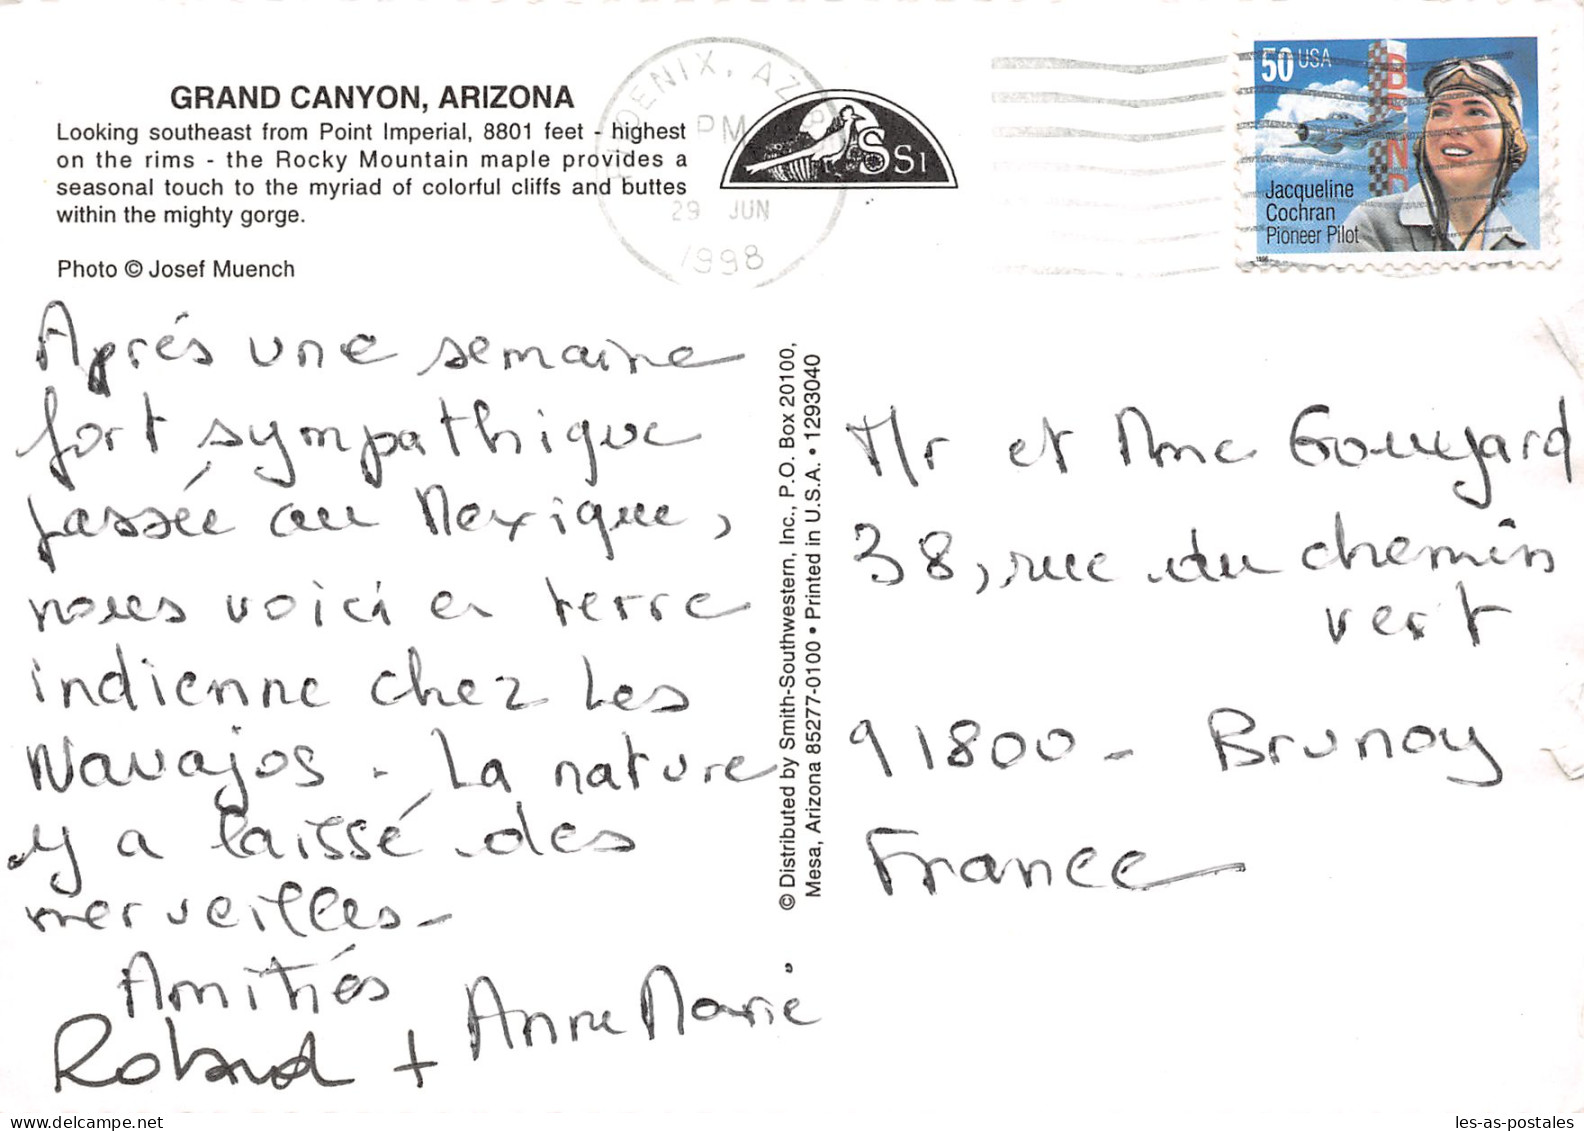 GRAND CANYON, ARIZONA
Looking southeast from Point Imperial, 8801 feet - highest
on the rims - the Rocky Mountain maple provides a
seasonal touch to the myriad of colorful cliffs and buttes
within the mighty gorge.
Photo © Josef Muench
PHOENIX, AZ
PM
29 JUN
1998
SSI
50 USA
Jacqueline
Cochran
Pioneer Pilot
1996
Après une semaine
fort sympathique
passée au Mexique,
nous voici en terre
indienne chez les
Navajos - La nature
y a laissé des
merveilles -
Amitiés
Roland + Anne Marie
© Distributed by Smith-Southwestern, Inc., P.O. Box 20100,
Mesa, Arizona 85277-0100 • Printed in U.S.A. • 1293040
Mr et Mme Goujard
38, rue du chemin
vert
91800 - Brunoy
France
les-as-postales